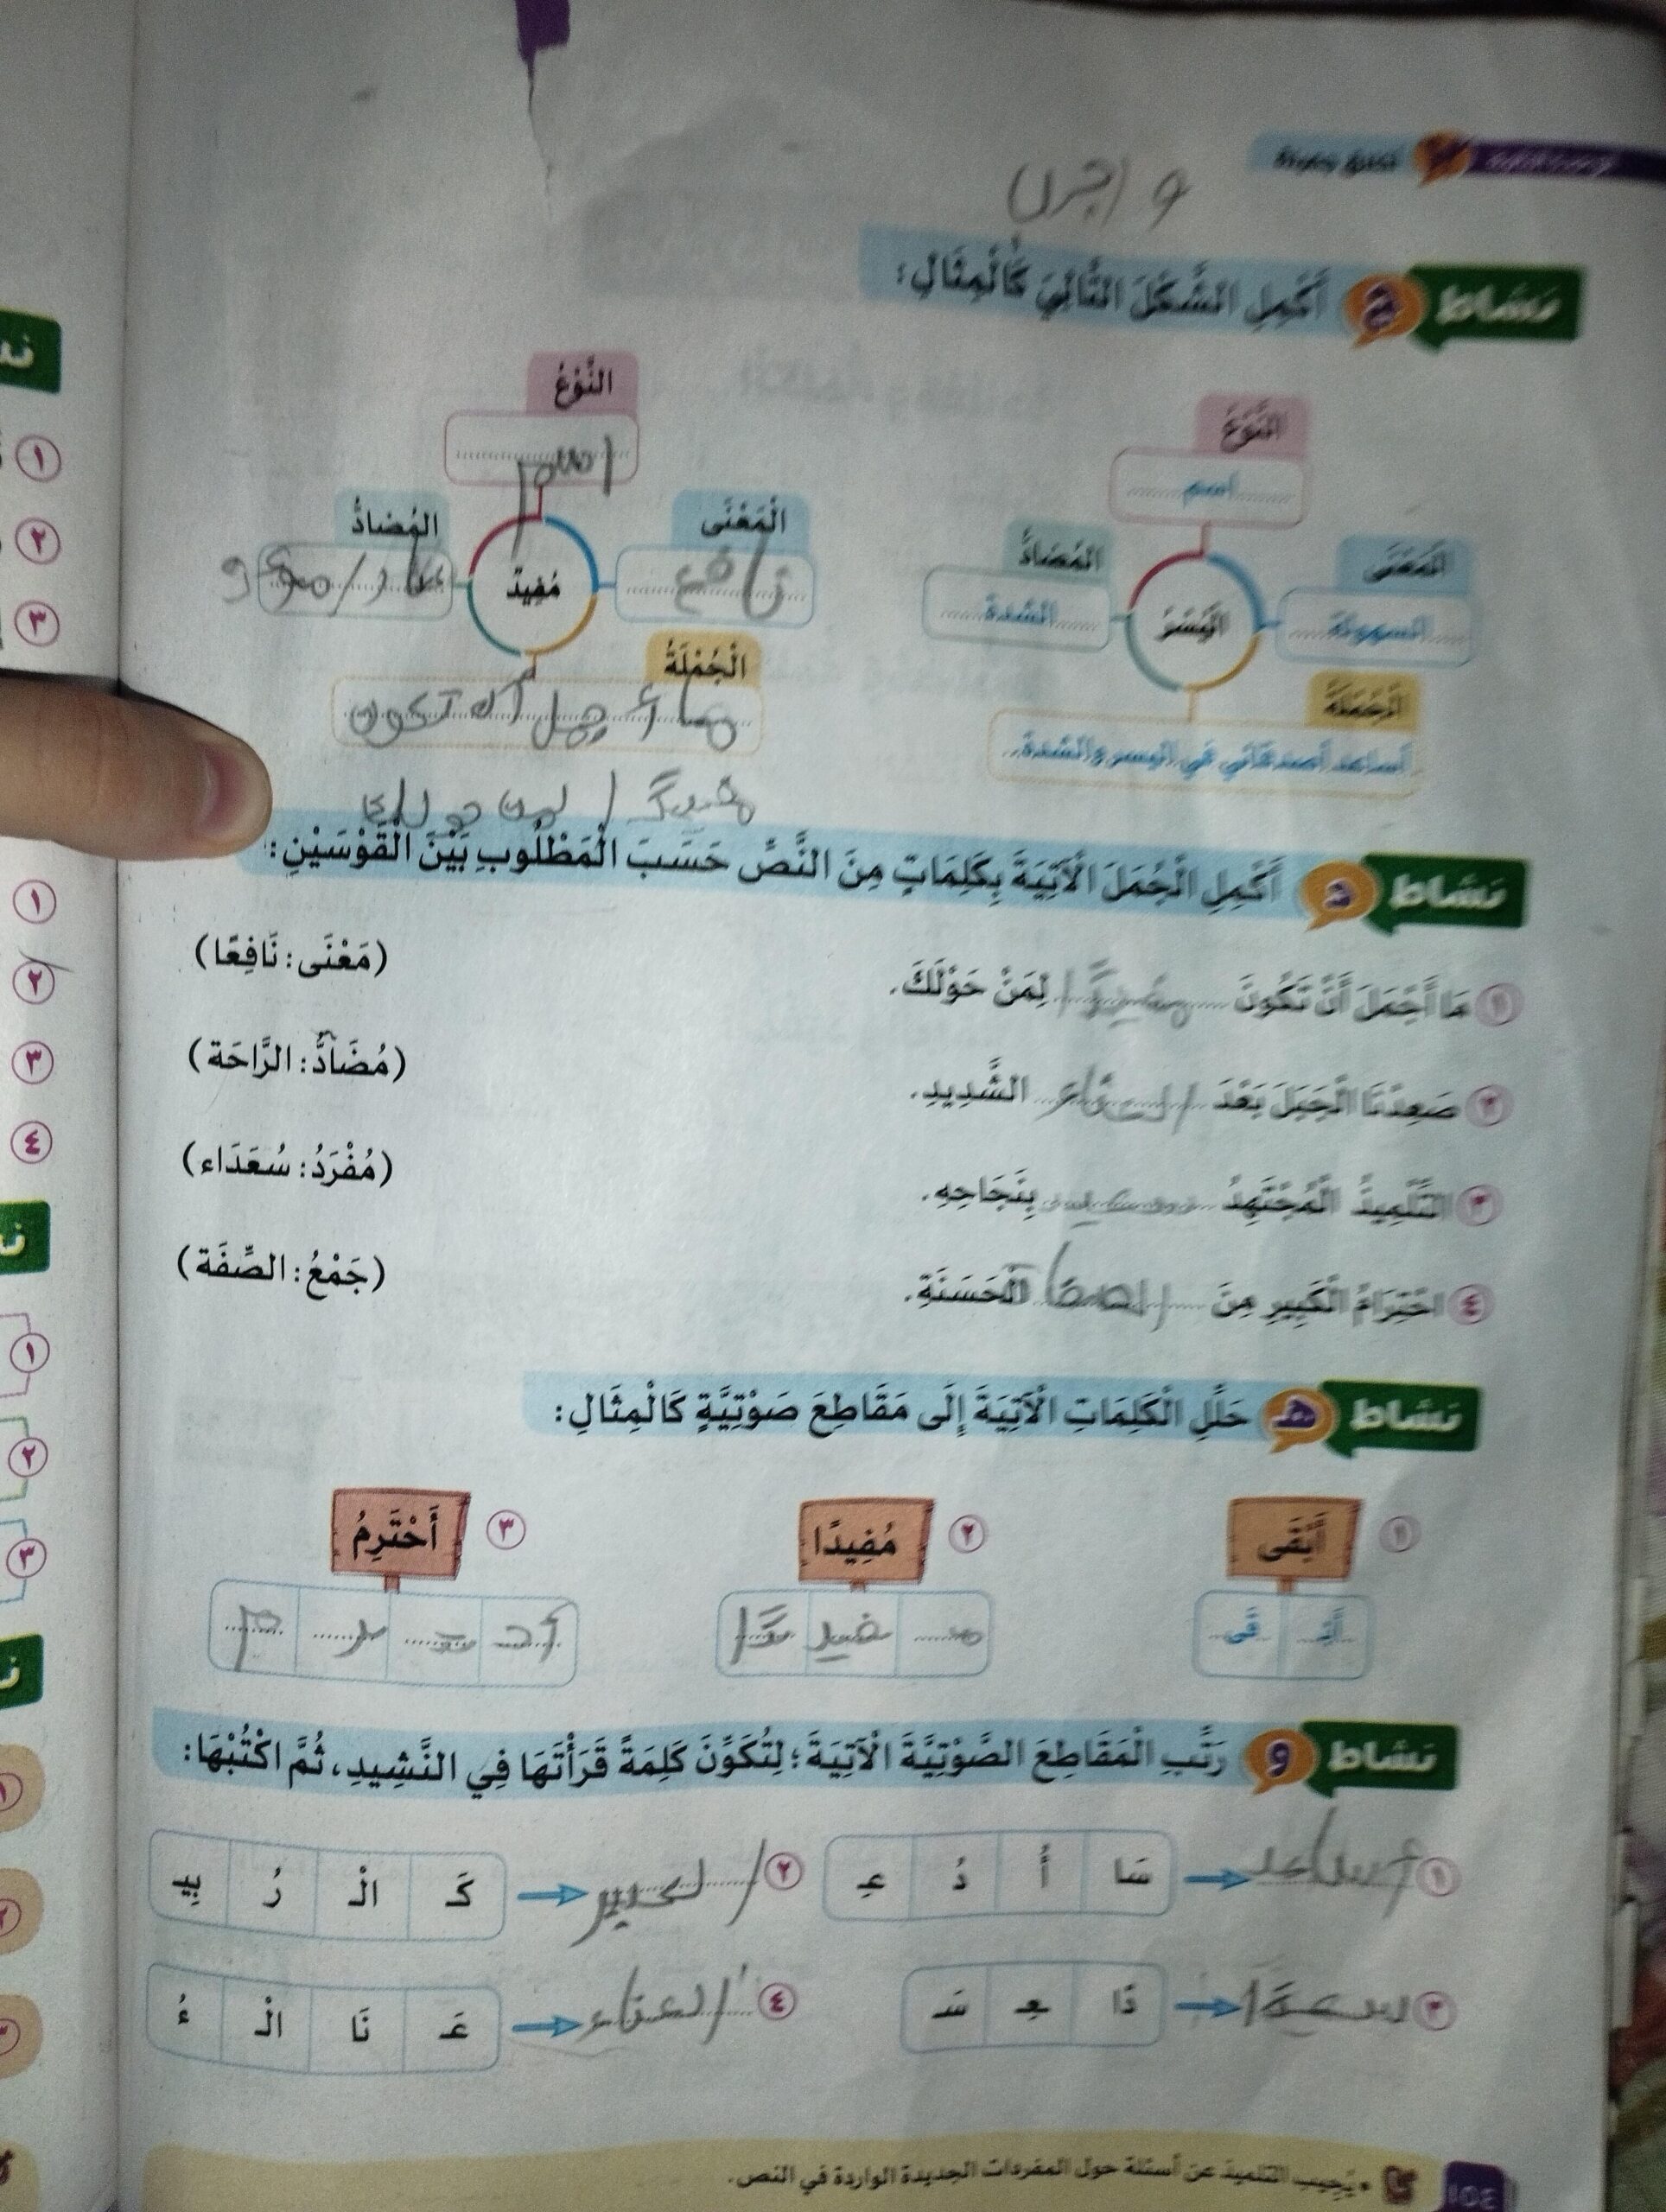 واجب
نَشاط ج أَكْمِلِ الشَّكْلَ التَّالِيَ كَالْمِثَالِ:
النَّوْعُ
اسم
الْمَعْنَى
السهولة
الْمُضَادُّ
الشدة
الْيُسْرُ
الْجُمْلَةُ
أساعد أصدقائي في اليسر والشدة.
النَّوْعُ
اسم
الْمَعْنَى
نافع
الْمُضَادُّ
ضار/
مُفِيدٌ
الْجُمْلَةُ
ما أجمل أن تكون
مفيدًا لمن حولك
نَشاط د أَكْمِلِ الْجُمَلَ الْآتِيَةَ بِكَلِمَاتٍ مِنَ النَّصِّ حَسَبَ الْمَطْلُوبِ بَيْنَ الْقَوْسَيْنِ:
١ مَا أَجْمَلَ أَنْ تَكُونَ مفيدًا لِمَنْ حَوْلَكَ. (مَعْنَى: نَافِعًا)
٢ صَعِدْنَا الْجَبَلَ بَعْدَ العناء الشَّدِيدِ. (مُضَادُّ: الرَّاحَة)
٣ التِّلْمِيذُ الْمُجْتَهِدُ سعيد بِنَجَاحِهِ. (مُفْرَدُ: سُعَدَاء)
٤ احْتِرَامُ الْكَبِيرِ مِنَ الصفات الْحَسَنَةِ. (جَمْعُ: الصِّفَة)
نَشاط هـ حَلِّلِ الْكَلِمَاتِ الْآتِيَةَ إِلَى مَقَاطِعَ صَوْتِيَّةٍ كَالْمِثَالِ:
١ أَبْقَى ٢ مُفِيدًا ٣ أَحْتَرِمُ
أَبْ قَى
مـ فيـ دًا
أحـ تـ ر م
نَشاط و رَتِّبِ الْمَقَاطِعَ الصَّوْتِيَّةَ الْآتِيَةَ؛ لِتُكَوِّنَ كَلِمَةً قَرَأْتَهَا فِي النَّشِيدِ، ثُمَّ اكْتُبْهَا:
١ أساعد سَا أُ دُ عِـ
٢ الكبير كَـ الْـ رُ بِيـ
٣ سعيدًا دًا عِـ سَـ
٤ العناء عَـ نَا الْـ ءُ
• يُجيب التلميذ عن أسئلة حول المفردات الجديدة الواردة في النص.